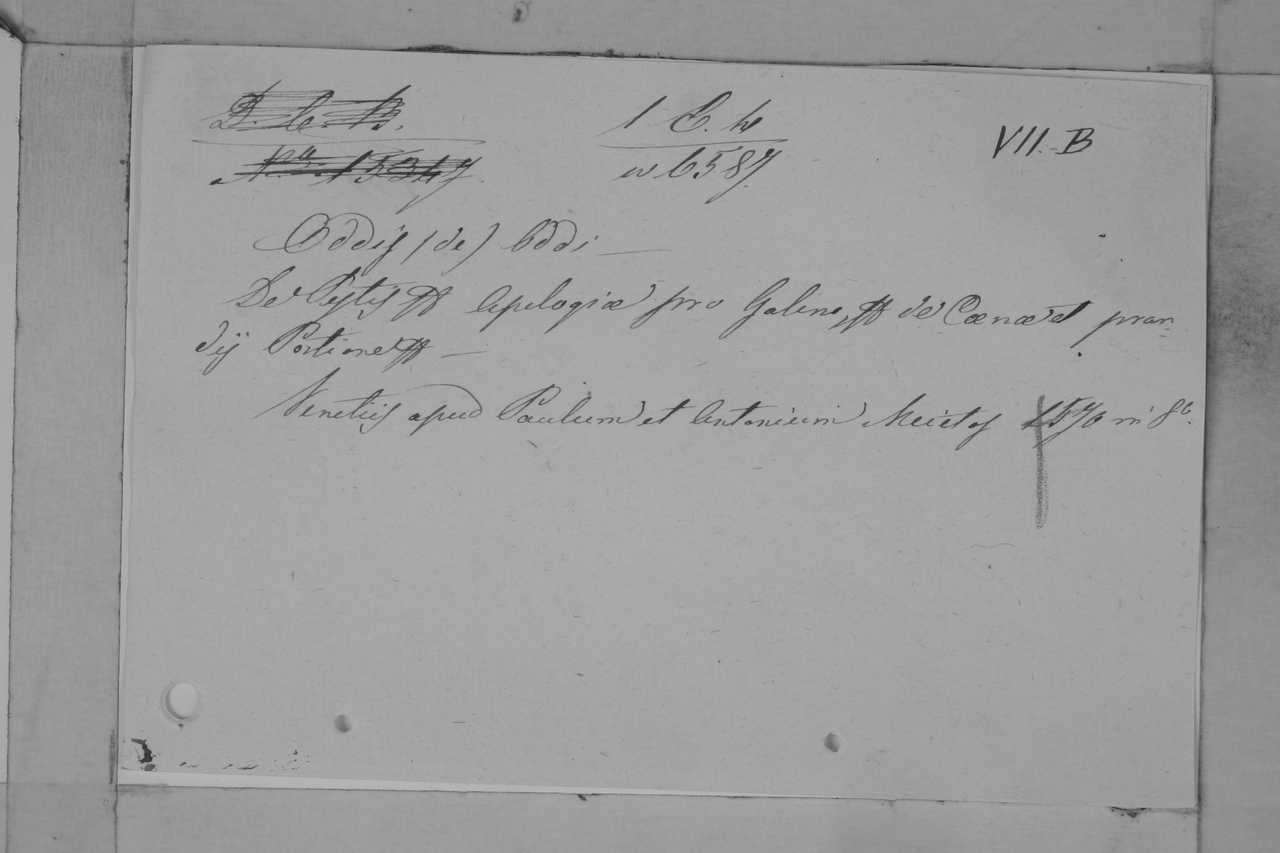 D. C. B.
1 C. w
VII.-B
Nro 15347.
w 6587.
Oddis (de) Oddi —
De Pestis Apologiæ pro Galeno, de Cœnæ et pran-
dij Portione —
Venetiis apud Paulum et Antonium Meietos 1570 in 8o.